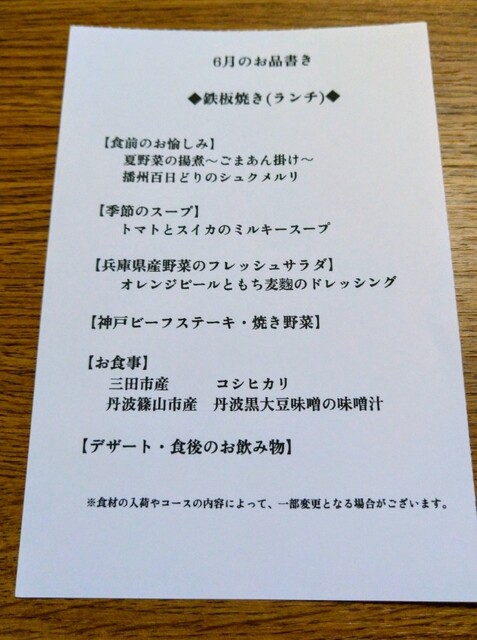 6月のお品書き
◆鉄板焼き(ランチ)◆
【食前のお愉しみ】
夏野菜の揚煮～ごまあん掛け～
播州百日どりのシュクメルリ
【季節のスープ】
トマトとスイカのミルキースープ
【兵庫県産野菜のフレッシュサラダ】
オレンジピールともち麦麹のドレッシング
【神戸ビーフステーキ・焼き野菜】
【お食事】
三田市産　コシヒカリ
丹波篠山市産　丹波黒大豆味噌の味噌汁
【デザート・食後のお飲み物】
※食材の入荷やコースの内容によって、一部変更となる場合がございます。